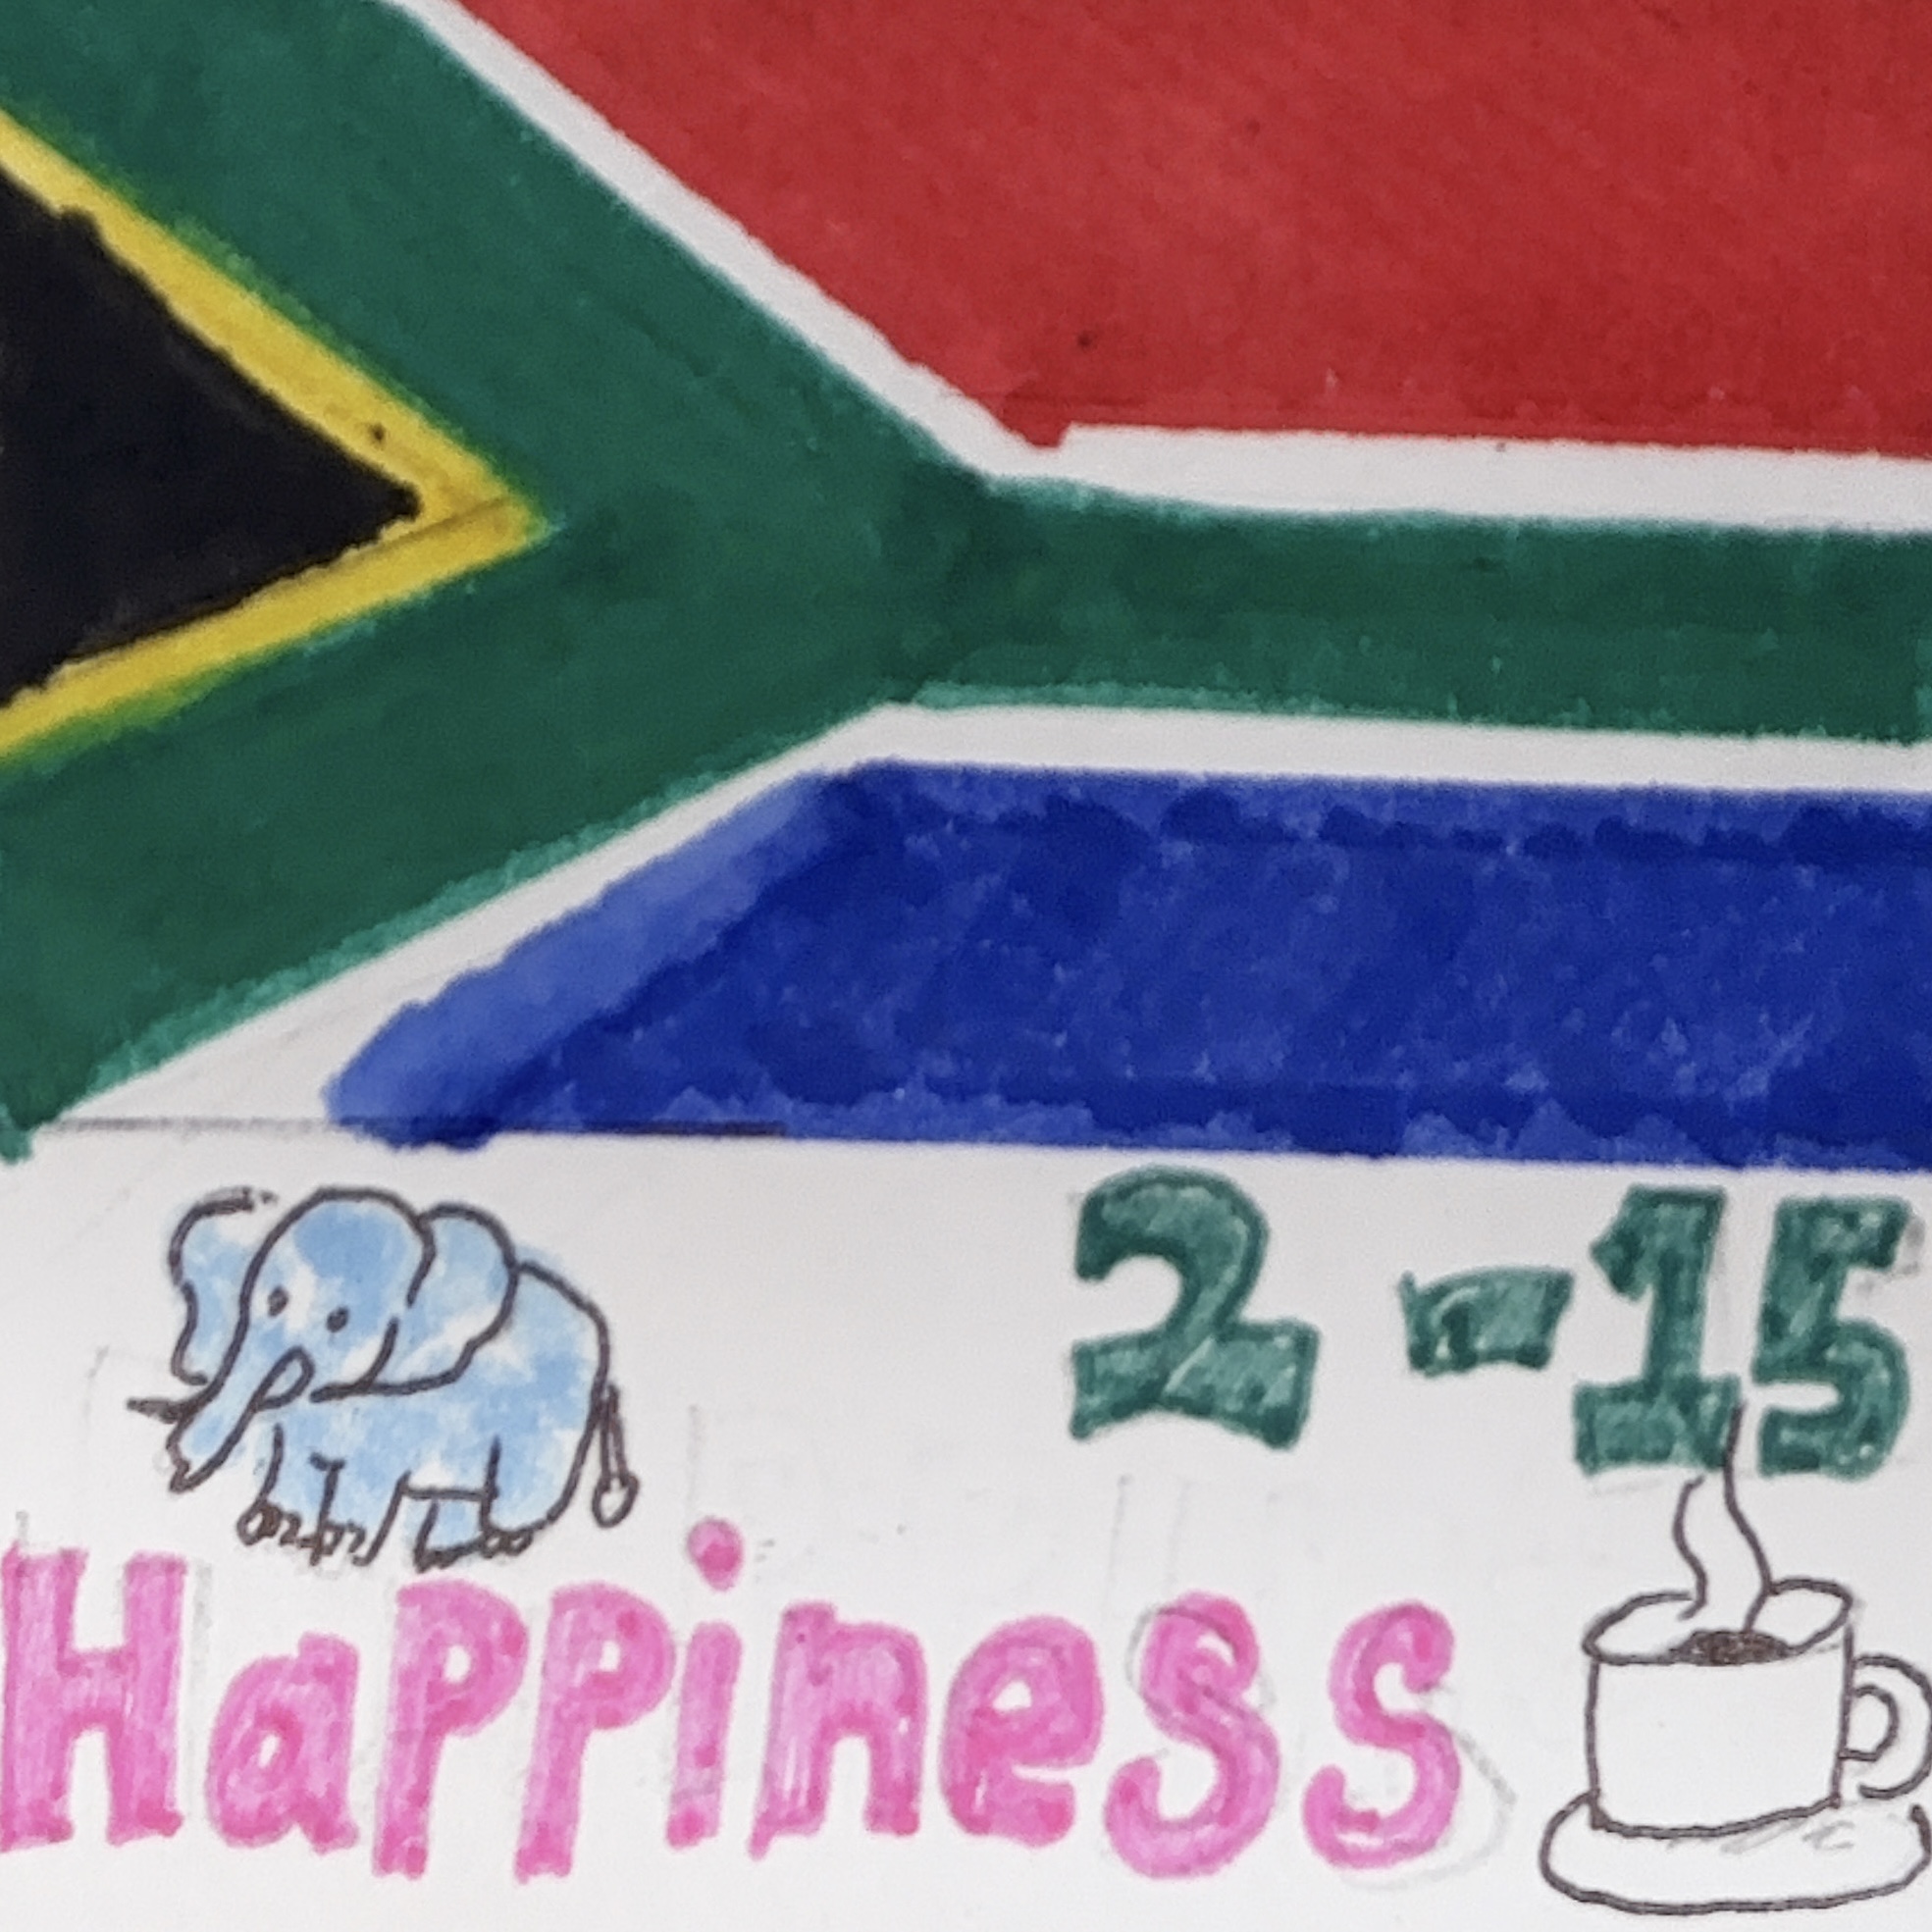 2-15
Happiness